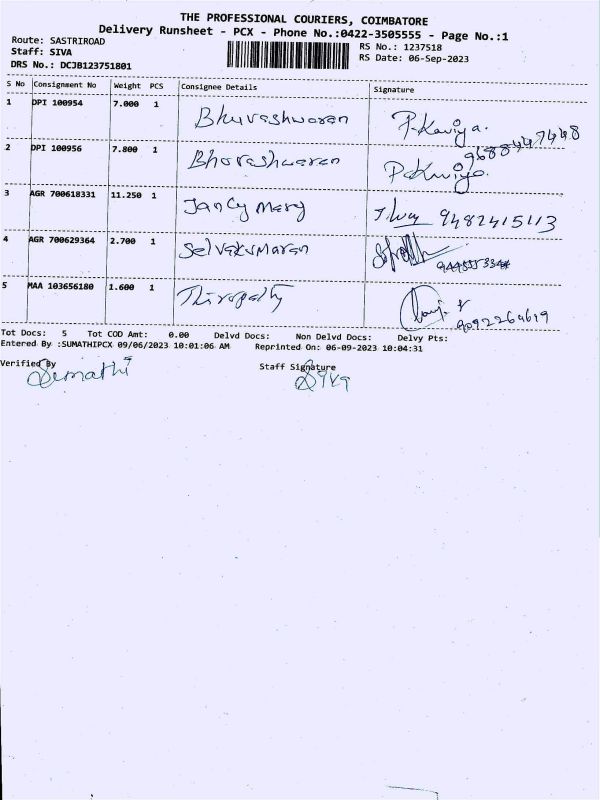 THE PROFESSIONAL COURIERS, COIMBATORE
Delivery Runsheet - PCX - Phone No.:0422-3505555 - Page No.:1
Route: SASTRIROAD
Staff: SIVA
DRS No.: DCJB123751801
RS No.: 1237518
RS Date: 06-Sep-2023
S No Consignment No Weight PCS Consignee Details Signature
1 DPI 100954 7.000 1 Bhuvashwaran P. Kaviya.
9688447448
2 DPI 100956 7.800 1 Bhovashwaran P. Kaviya.
3 AGR 700618331 11.250 1 Jancy Mary 9482415113
4 AGR 700629364 2.700 1 Selvakumaran
5 MAA 103656180 1.600 1 Thirupathy
9092269619
Tot Docs: 5 Tot COD Amt: 0.00 Delvd Docs: Non Delvd Docs: Delvy Pts:
Entered By :SUMATHIPCX 09/06/2023 10:01:06 AM Reprinted On: 06-09-2023 10:04:31
Verified By Staff Signature
Sumathi Siva